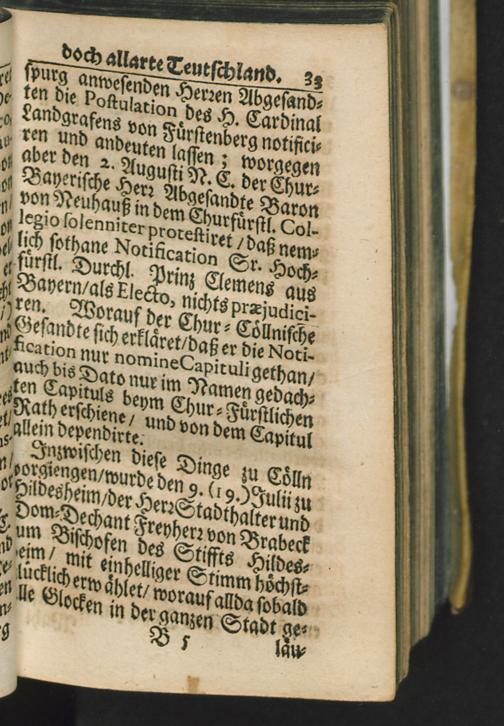 doch allarte Teutschland. 33
spurg anwesenden Herren Abgesand⸗
ten die Postulation des H. Cardinal
Landgrafens von Fürstenberg notifici⸗
ren und andeuten lassen; worgegen
aber den 2. Augusti N. C. der Chur⸗
Bayerische Herr Abgesandte Baron
von Neuhauß in dem Churfürstl. Col⸗
legio solenniter protestiret/daß nem⸗
lich sothane Notification Sr. Hoch⸗
fürstl. Durchl. Prinz Clemens aus
Bayern/als Electo, nichts præjudici⸗
ren. Worauf der Chur⸗Cöllnische
Gesandte sich erkläret/daß er die Noti⸗
fication nur nomine Capituli gethan/
auch bis Dato nur im Namen gedach⸗
ten Capituls beym Chur⸗Fürstlichen
Rath erschiene/ und von dem Capitul
allein dependirte.
Inzwischen diese Dinge zu Cölln
vorgiengen/wurde den 9. (19.) Julii zu
Hildesheim/der Herr Stadthalter und
Dom⸗Dechant Freyherr von Brabeck
um Bischofen des Stiffts Hildes⸗
eim/ mit einhelliger Stimm höchst⸗
lücklich erwählet/worauf allda sobald
lle Glocken in der ganzen Stadt ge⸗
B 5 läu⸗